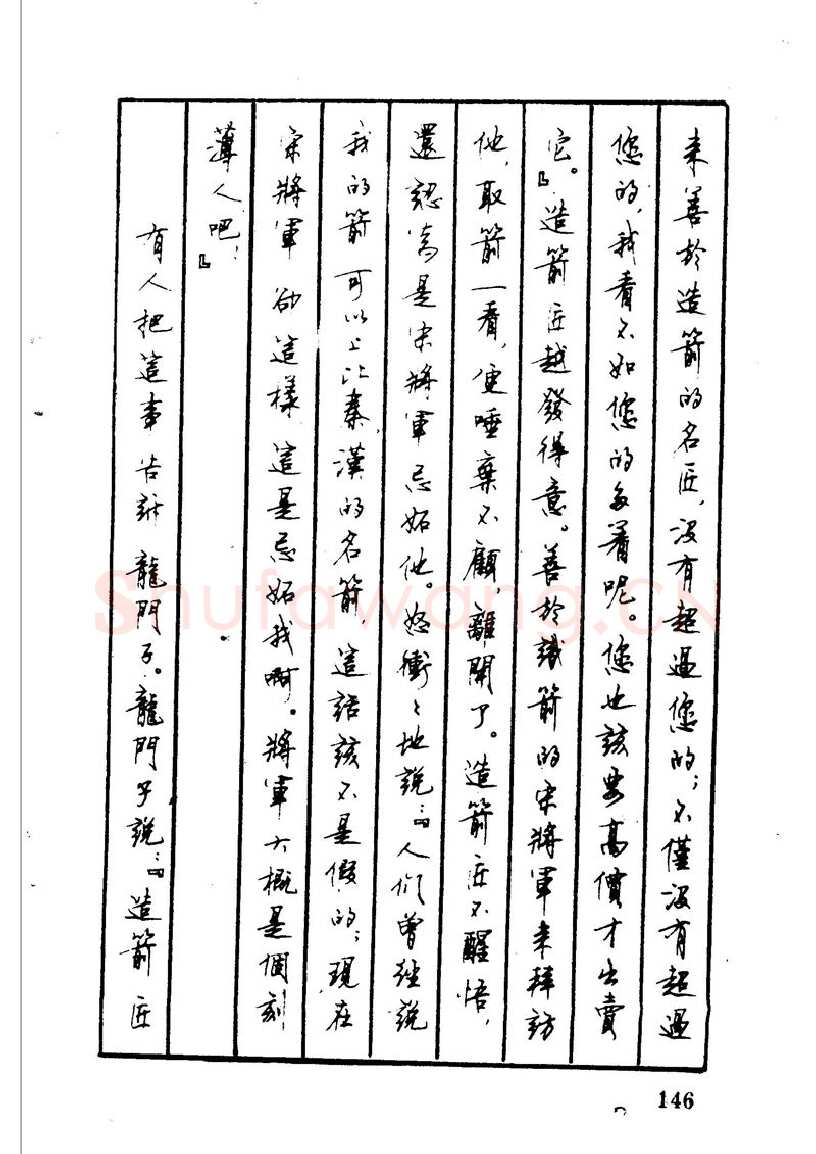 来善於造箭的名匠，没有超過您的；不僅没有超過
您的，我看不如您的多着呢。您也該要高價才出賣
它。』造箭匠越發得意。善於識箭的宋將軍来拜訪
他，取箭一看，便唾棄不顧，離開了。造箭匠不醒悟，
還認為是宋將軍忌妬他。怒衝々地説：『人们曾經説
我的箭可以上比秦漢的名箭，這話該不是假的；現在
宋將軍却這樣，這是忌妬我啊。將軍大概是個刻
薄人吧！』
有人把這事告訴龍門子。龍門子説：『造箭匠
146
Shufawang.CN